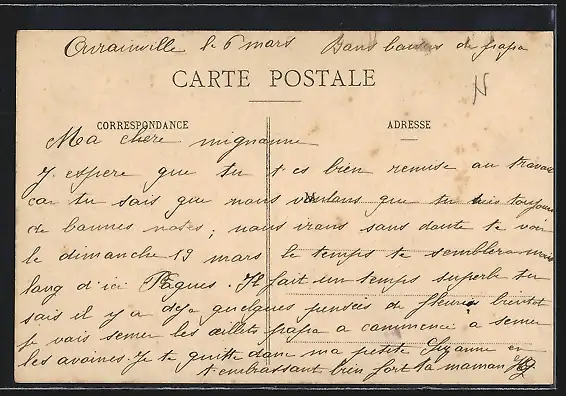 Ourainville le 6 mars Bons baisers de papa
CARTE POSTALE
CORRESPONDANCE
ADRESSE
Ma chere mignonne
J'espere que tu t'es bien remise au travail
car tu sais que nous voulons que tu aies toujours
de bonnes notes; nous irons sans doute te voir
le dimanche 19 mars le temps te semblera moins
long d'ici Pâques. Il fait un temps superbe tu
sais il y a deja quelques pensées de fleuries bientot
je vais semer les œillets papa a commencé a semer
les avoines. Je te quitte donc ma petite Suzanne en
t'embrassant bien fort ta maman